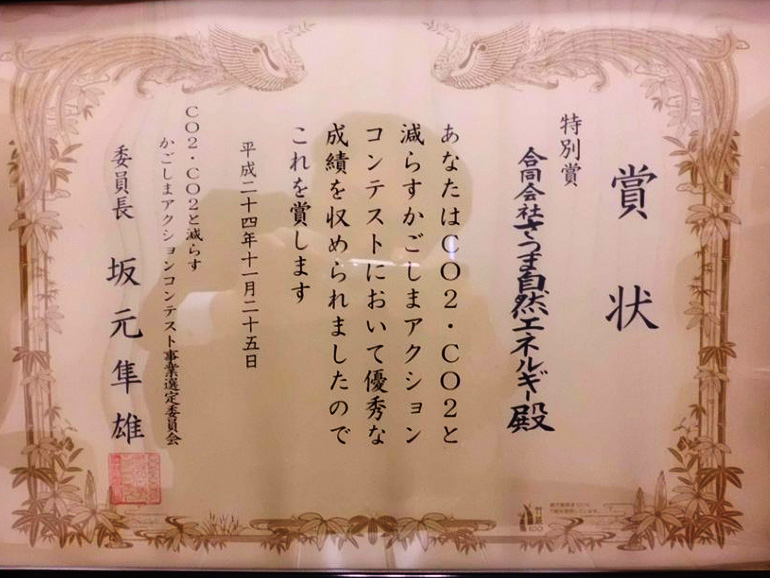 賞状
特別賞
合同会社さつま自然エネルギー殿
あなたはCO2・CO2と
減らすかごしまアクション
コンテストにおいて優秀な
成績を収められましたので
これを賞します
平成二十四年十一月二十五日
CO2・CO2と減らす
かごしまアクションコンテスト事業選定委員会
委員長 坂元隼雄
竹紙
100